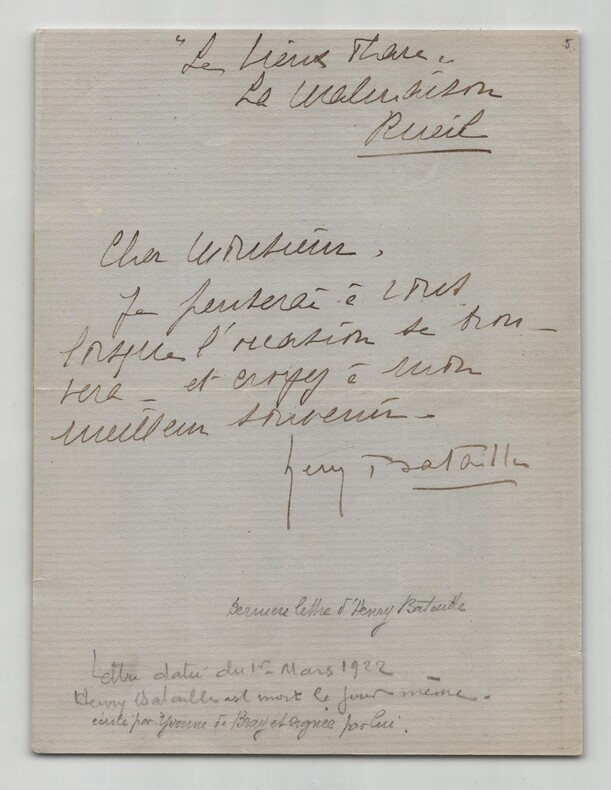 5.
"Le Vieux Phare"
La Malmaison
Rueil
Cher Monsieur,
Je penserai à vous
lorsque l'occasion se trou-
vera - et croyez à mon
meilleur souvenir -
Henry Bataille
Dernière lettre d'Henry Bataille
Lettre datée du 1er Mars 1922
Henry Bataille est mort le jour même.
écrite par Yvonne de Bray et signée par lui.